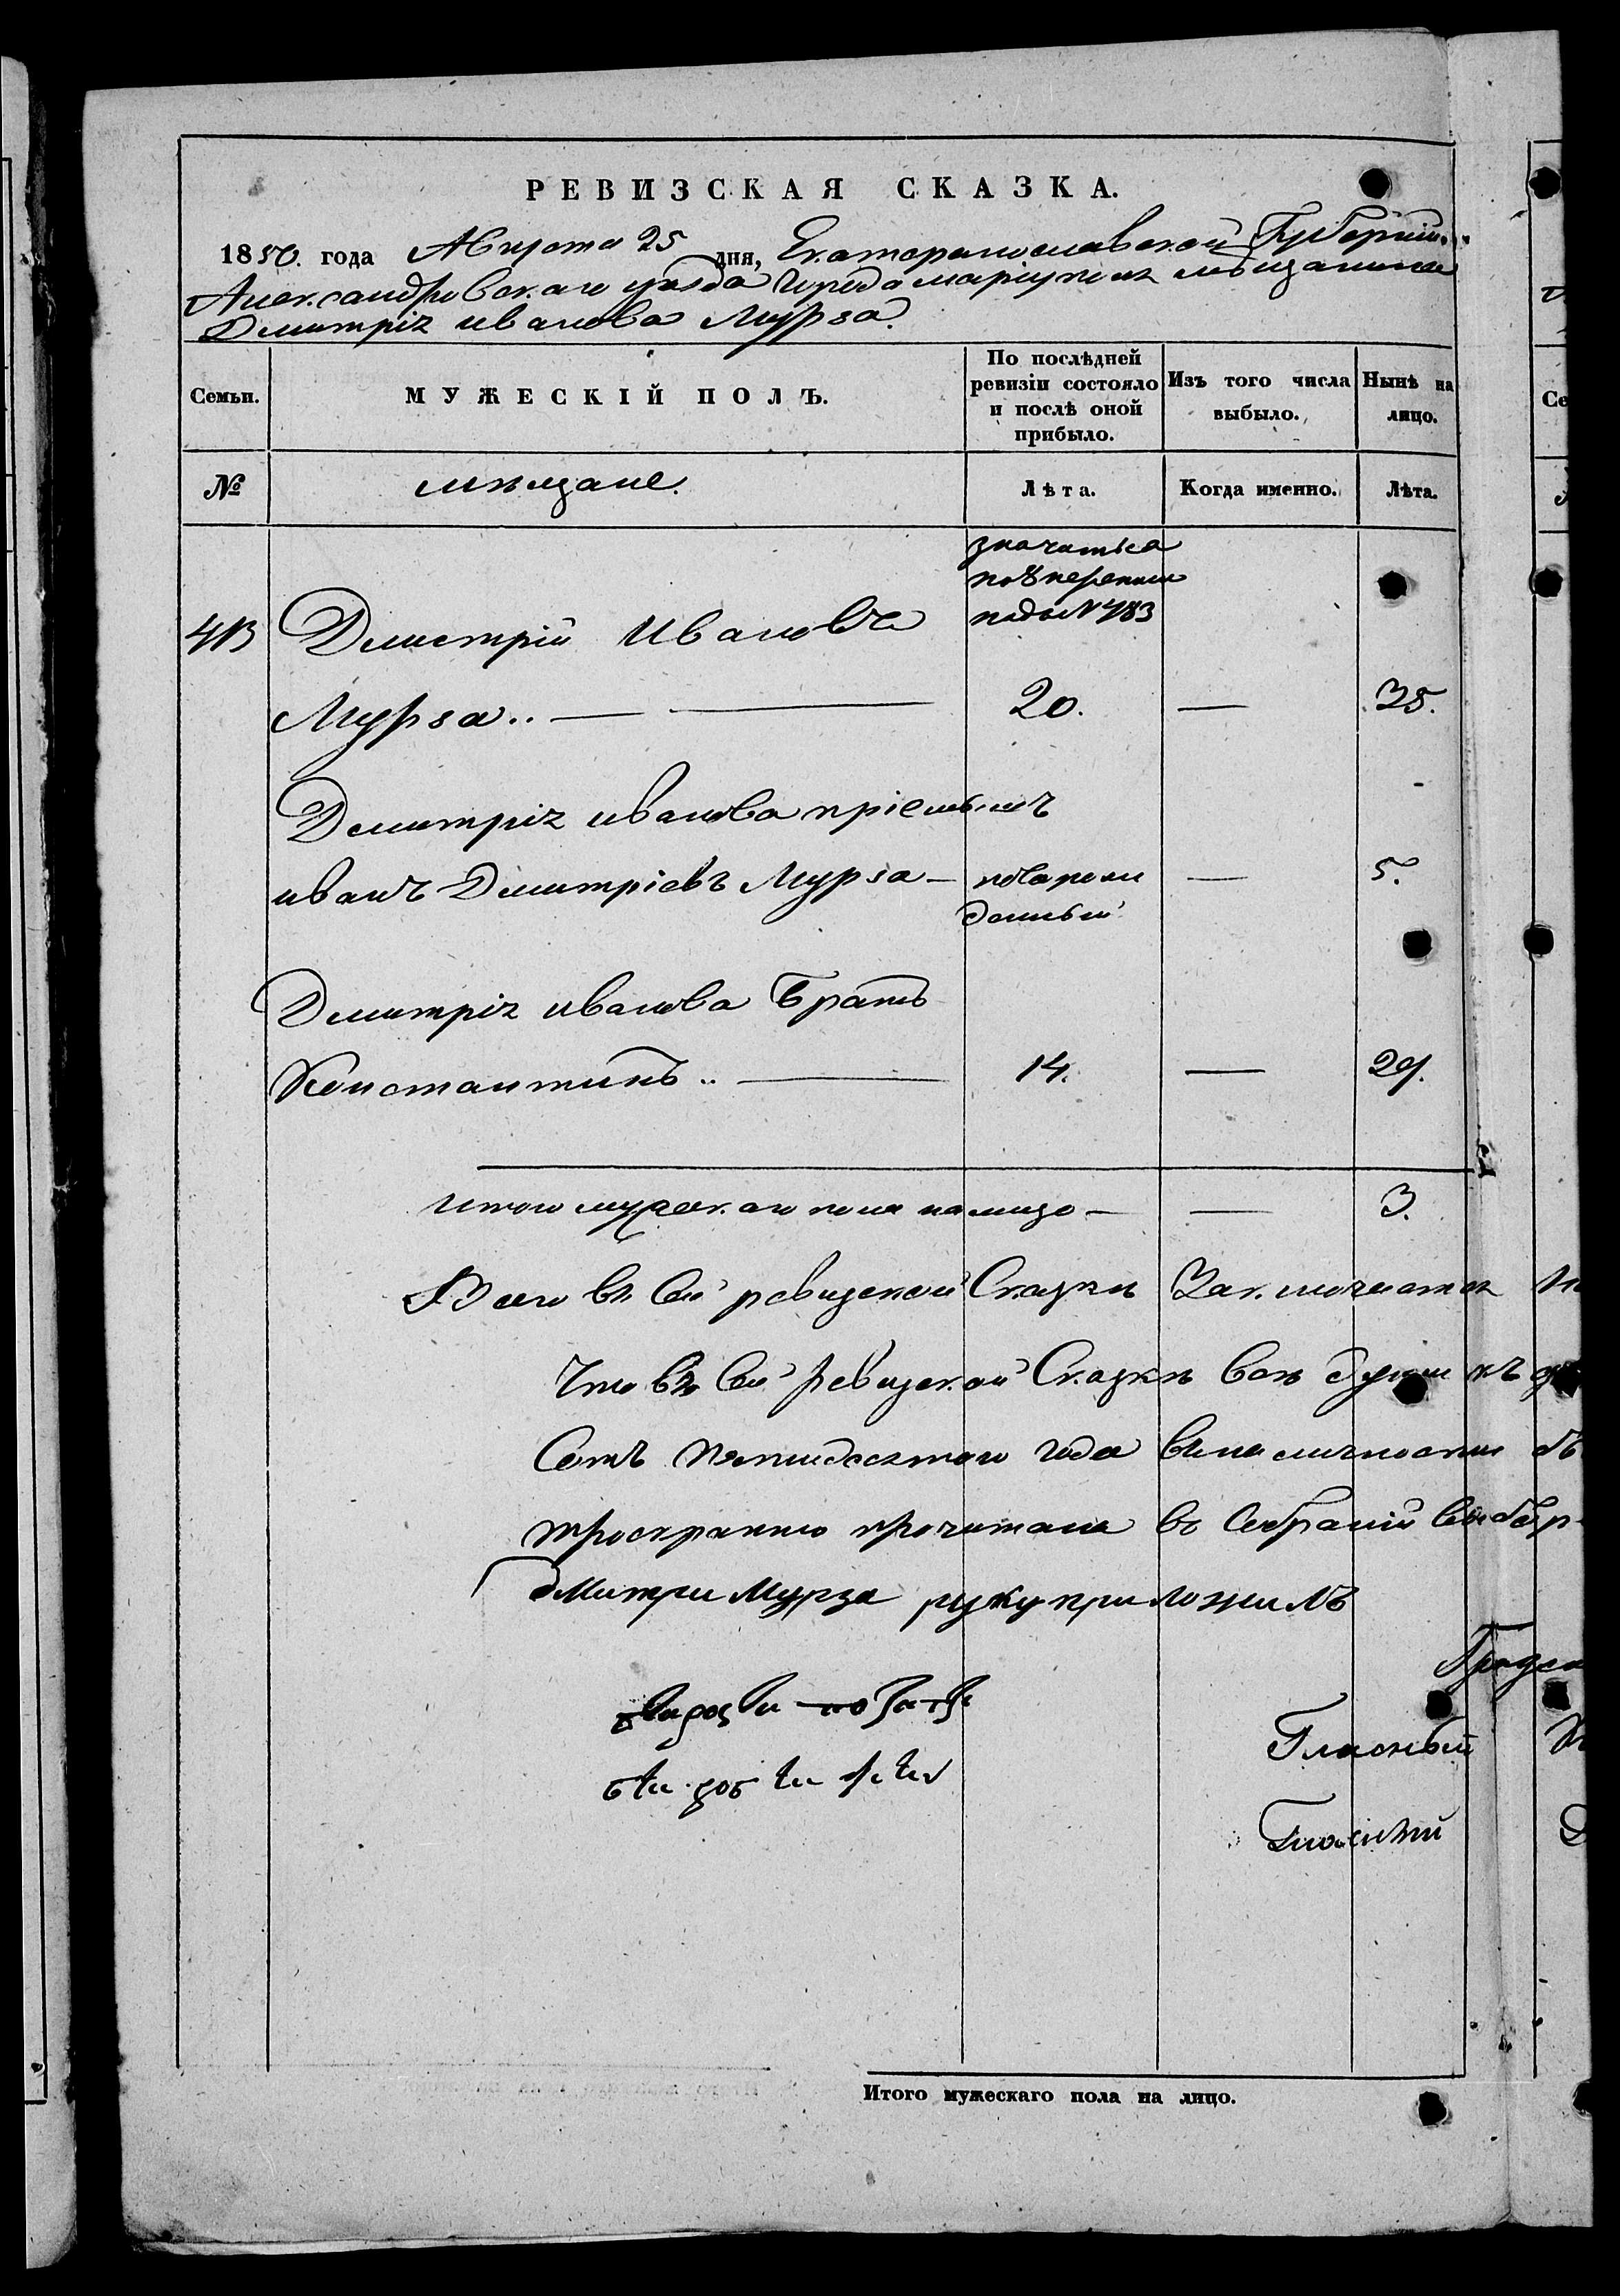 РЕВИЗСКАЯ СКАЗКА.
1850. года Августа 25 дня, Екатеринославской Губерніи
Александровскаго уѣзда города Маріуполя мѣщанина
Дмитрія Иванова Мурза.
Семьи.
МУЖЕСКІЙ ПОЛЪ.
По послѣдней ревизіи состояло и послѣ оной прибыло.
Изъ того числа выбыло.
Нынѣ на лицо.
№
мѣщане.
Лѣта.
Когда именно.
Лѣта.
значится
по 8 переписи
подъ № 483
Дмитрій Ивановъ
Мурза.. — — 20. — 35.
Дмитрія Иванова пріемышъ
Иванъ Дмитріевъ Мурза — новорож
денный — 5.
Дмитрія Иванова братъ
Константинъ.. — 14. — 29.
Итого мужескаго пола на лицо — — 3.
Всего въ сей ревизской Сказкѣ Заключается
Что въ сей Ревизской Сказкѣ всѣ души къ
Сотъ пятидесятаго года въ наличности
прочитана въ Собраніи
дМитри Мурза руку приложилъ
Гласный
Гласный
Итого мужескаго пола на лицо.